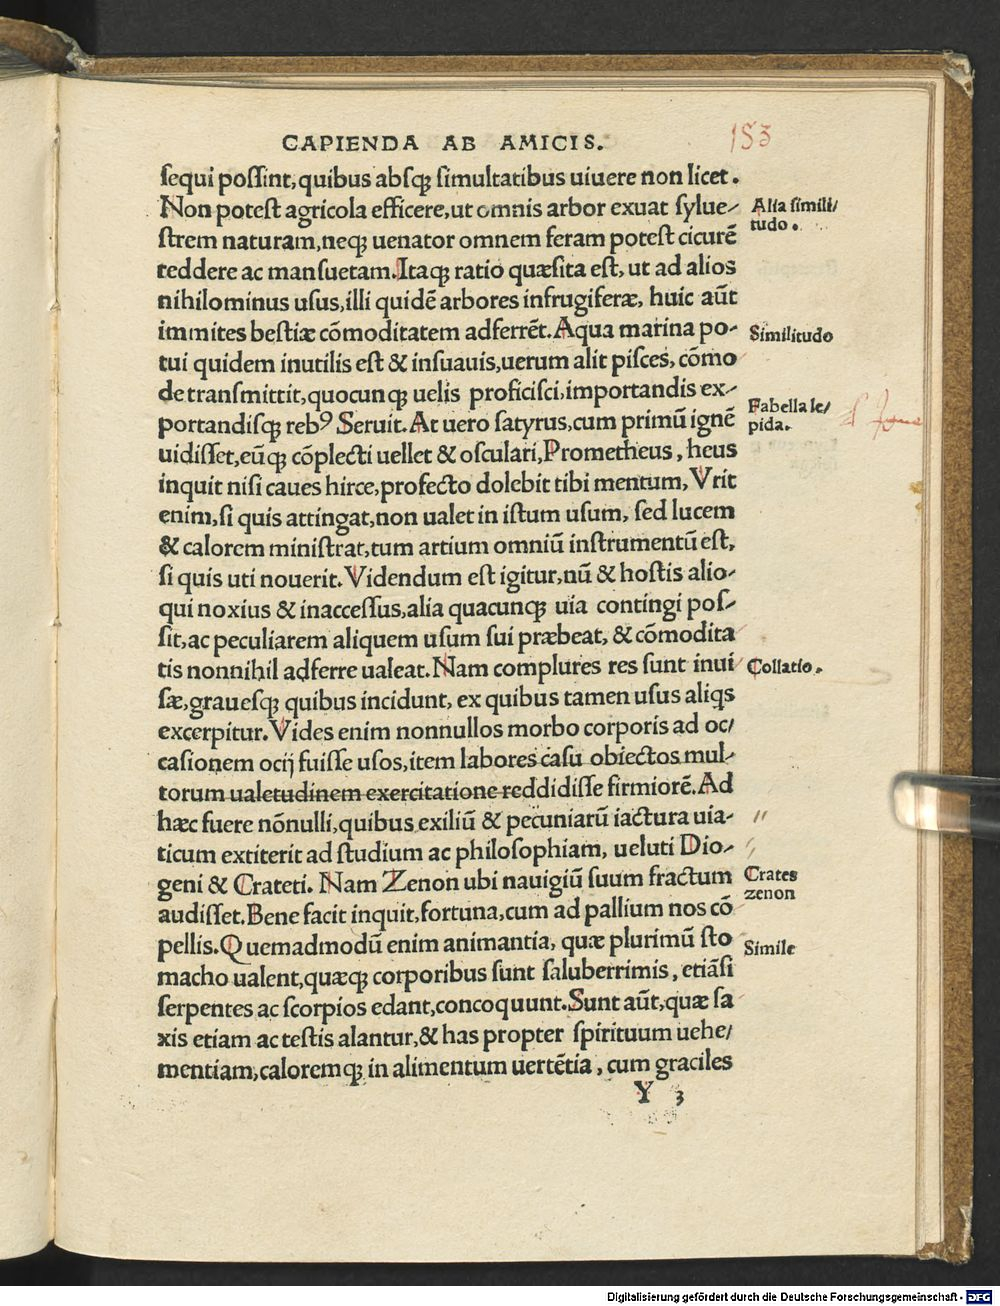 CAPIENDA AB AMICIS.
153
sequi possint, quibus absqꝫ simultatibus uiuere non licet.
Non potest agricola efficere, ut omnis arbor exuat sylue-
strem naturam, neqꝫ uenator omnem feram potest cicurē
reddere ac mansuetam. Itaqꝫ ratio quæsita est, ut ad alios
nihilominus usus, illi quidē arbores infrugiferæ, huic aūt
immites bestiæ cōmoditatem adferrēt. Aqua marina po-
tui quidem inutilis est & insuauis, uerum alit pisces, cōmo
de transmittit, quocunqꝫ uelis proficisci, importandis ex-
portandisqꝫ rebꝰ Seruit. At uero satyrus, cum primū ignē
uidisset, eūqꝫ cōplecti uellet & osculari, Prometheus, heus
inquit nisi caues hirce, profecto dolebit tibi mentum, Vrit
enim, si quis attingat, non ualet in istum usum, sed lucem
& calorem ministrat, tum artium omniū instrumentū est,
si quis uti nouerit. Videndum est igitur, nū & hostis alio-
qui noxius & inaccessus, alia quacunqꝫ uia contingi pos-
sit, ac peculiarem aliquem usum sui præbeat, & cōmodita
tis nonnihil adferre ualeat. Nam complures res sunt inui
sæ, grauesqꝫ quibus incidunt, ex quibus tamen usus aliqs
excerpitur. Vides enim nonnullos morbo corporis ad oc/
casionem ocij fuisse usos, item labores casu obiectos mul-
torum ualetudinem exercitatione reddidisse firmiorē. Ad
hæc fuere nōnulli, quibus exiliū & pecuniarū iactura uia-
ticum extiterit ad studium ac philosophiam, ueluti Dio-
geni & Crateti. Nam Zenon ubi nauigiū suum fractum
audisset. Bene facit inquit, fortuna, cum ad pallium nos cō
pellis. Quemadmodū enim animantia, quæ plurimū sto
macho ualent, quæqꝫ corporibus sunt saluberrimis, etiāsi
serpentes ac scorpios edant, concoquunt. Sunt aūt, quæ sa
xis etiam ac testis alantur, & has propter spirituum uehe/
mentiam, caloremqꝫ in alimentum uertētia, cum graciles
Y 3
Alia simili/
tudo.
Similitudo
Fabella le/
pida.
Collatio.
Crates
zenon
Simile
Digitalisierung gefördert durch die Deutsche Forschungsgemeinschaft - DFG